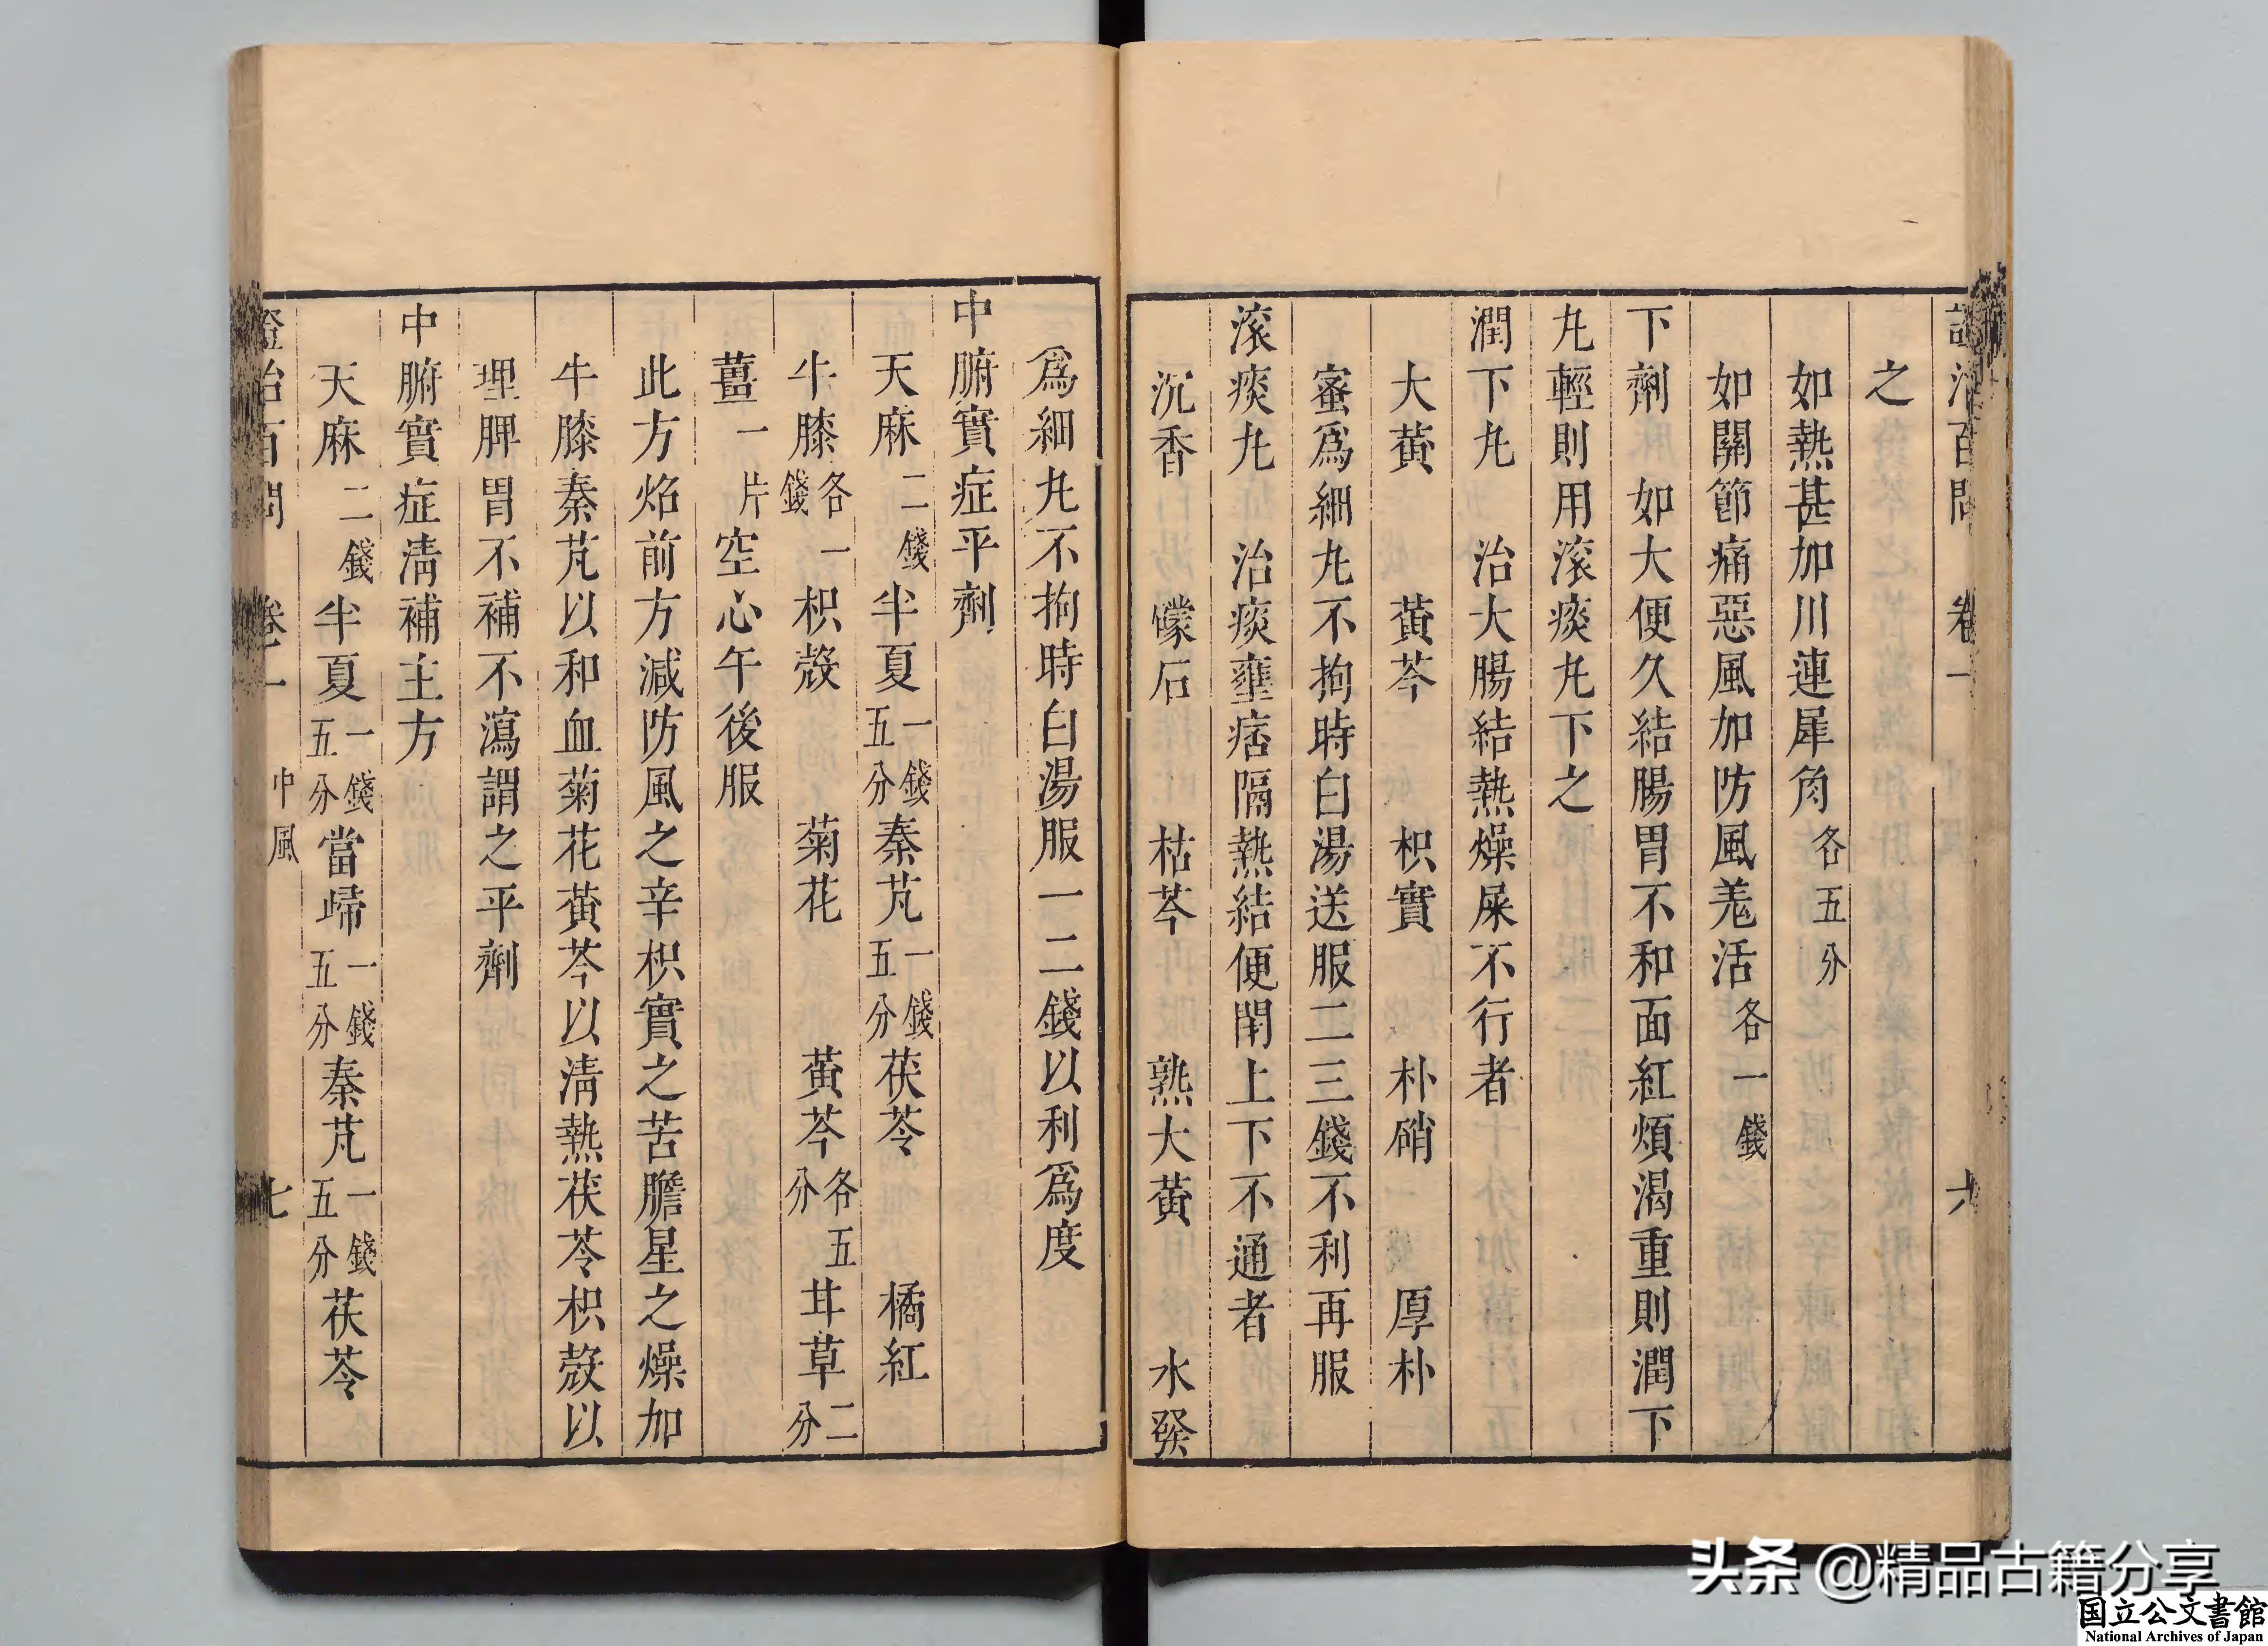 證治百問 卷一 六
之
如熱甚加川連犀角各五分
如關節痛惡風加防風羌活各一錢
下劑 如大便久結腸胃不和面紅煩渴重則潤下
丸輕則用滾痰丸下之
潤下丸 治大腸結熱燥屎不行者
大黃 黃芩 枳實 朴硝 厚朴
蜜爲細丸不拘時白湯送服二三錢不利再服
滾痰丸 治痰壅痞隔熱結便閉上下不通者
沉香 礞石 枯芩 熟大黃 水發
爲細丸不拘時白湯服一二錢以利爲度
中腑實症平劑
天麻二錢半夏一錢五分秦艽一錢五分茯苓 橘紅
牛膝各一錢枳殼 菊花 黃芩各五分甘草二分
薑一片空心午後服
此方炤前方減防風之辛枳實之苦膽星之燥加
牛膝秦艽以和血菊花黃芩以清熱茯苓枳殼以
理脾胃不補不瀉謂之平劑
中腑實症清補主方
天麻二錢半夏一錢五分當歸一錢五分秦艽一錢五分茯苓
證治百問 卷一 中風 七
头条 @精品古籍分享
国立公文書館
National Archives of Japan